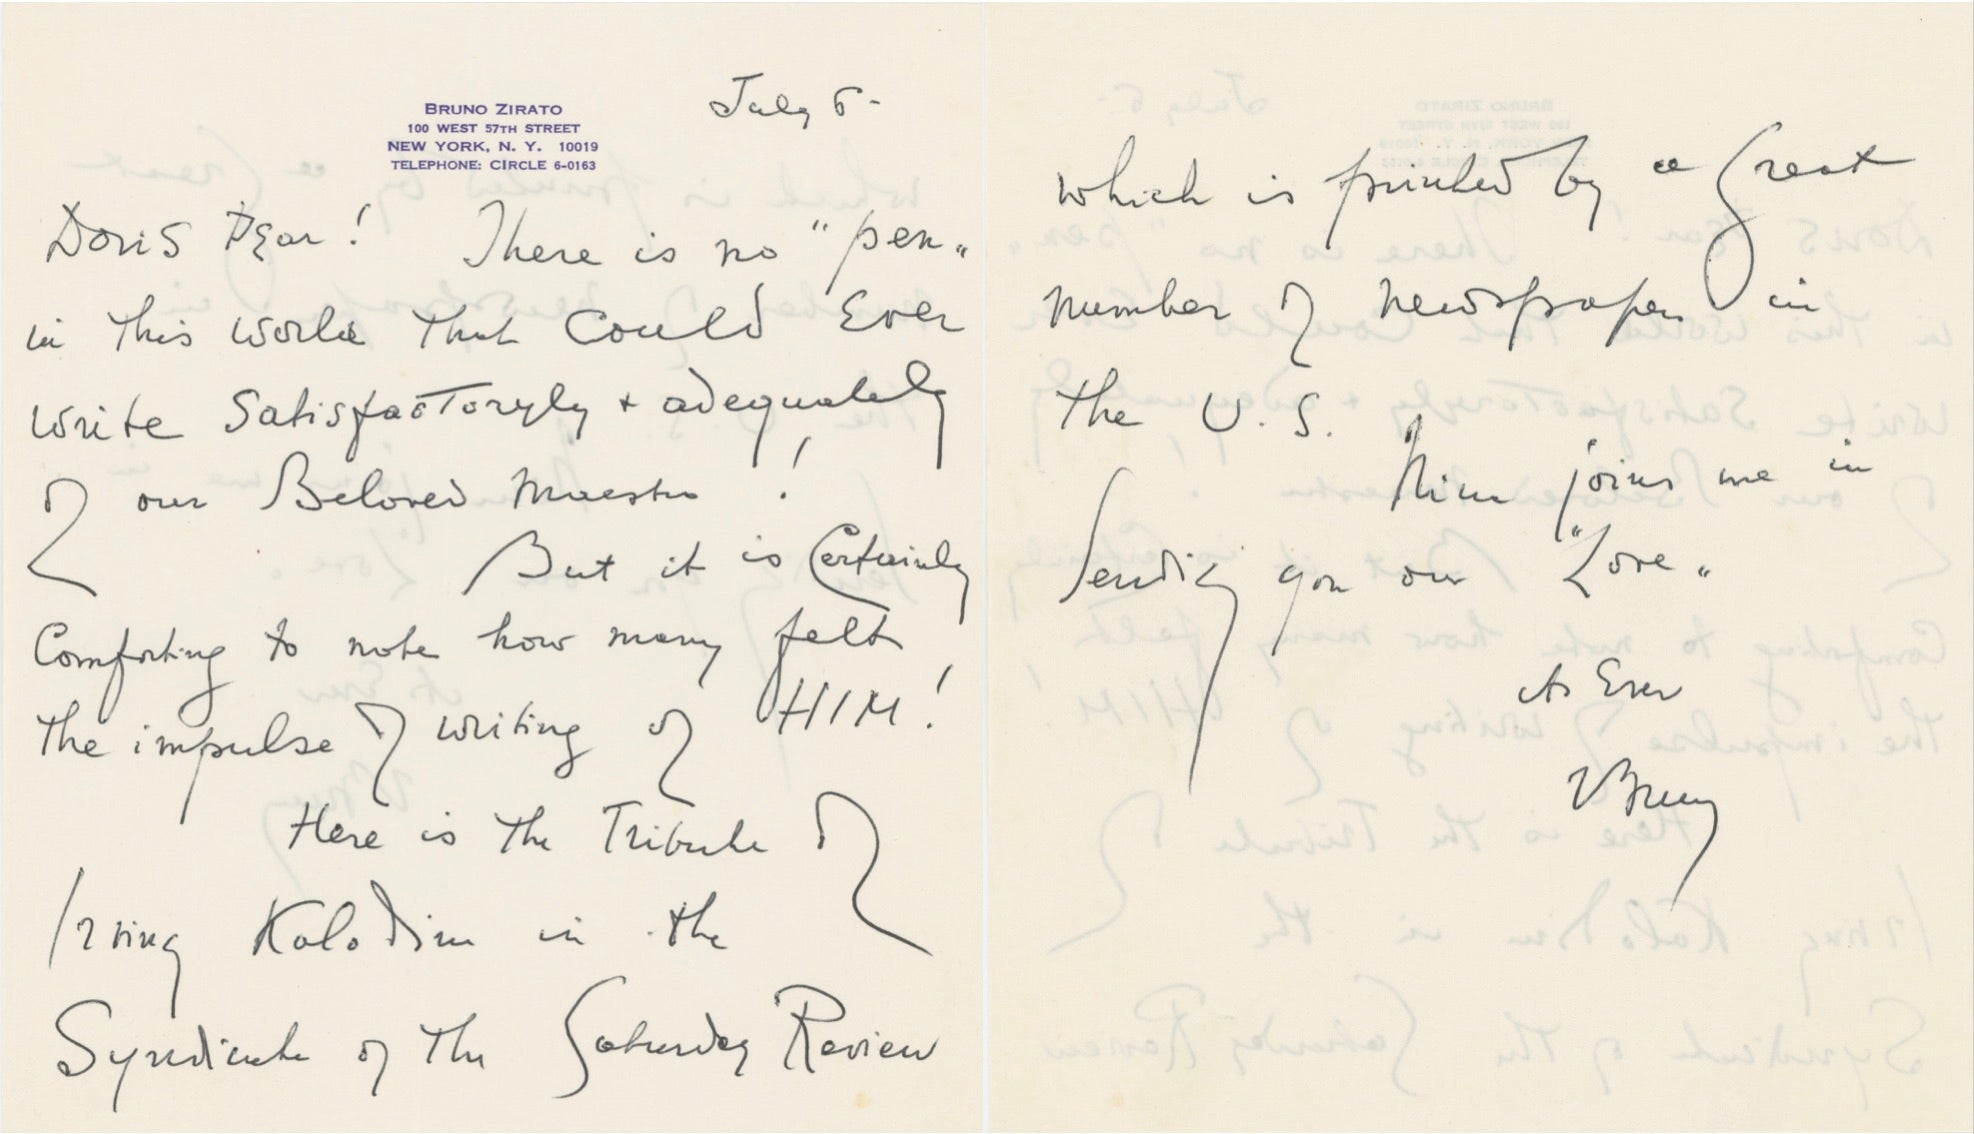 BRUNO ZIRATO
100 WEST 57TH STREET
NEW YORK, N. Y. 10019
TELEPHONE: CIRCLE 6-0163
July 6-
Doris Dear! There is no "pen"
in this world that could Ever
write Satisfactoryly + adequately
of our Beloved Maestro!
But it is Certainly
Comforting to note how many felt
the impulse of writing of HIM!
Here is the Tribute of
Irving Kolodin in the
Syndicate of the Saturday Review
which is printed by a great
number of newspapers in
the U.S.
Nina joins me in
Sending you our "Love"
As Ever
Bruno